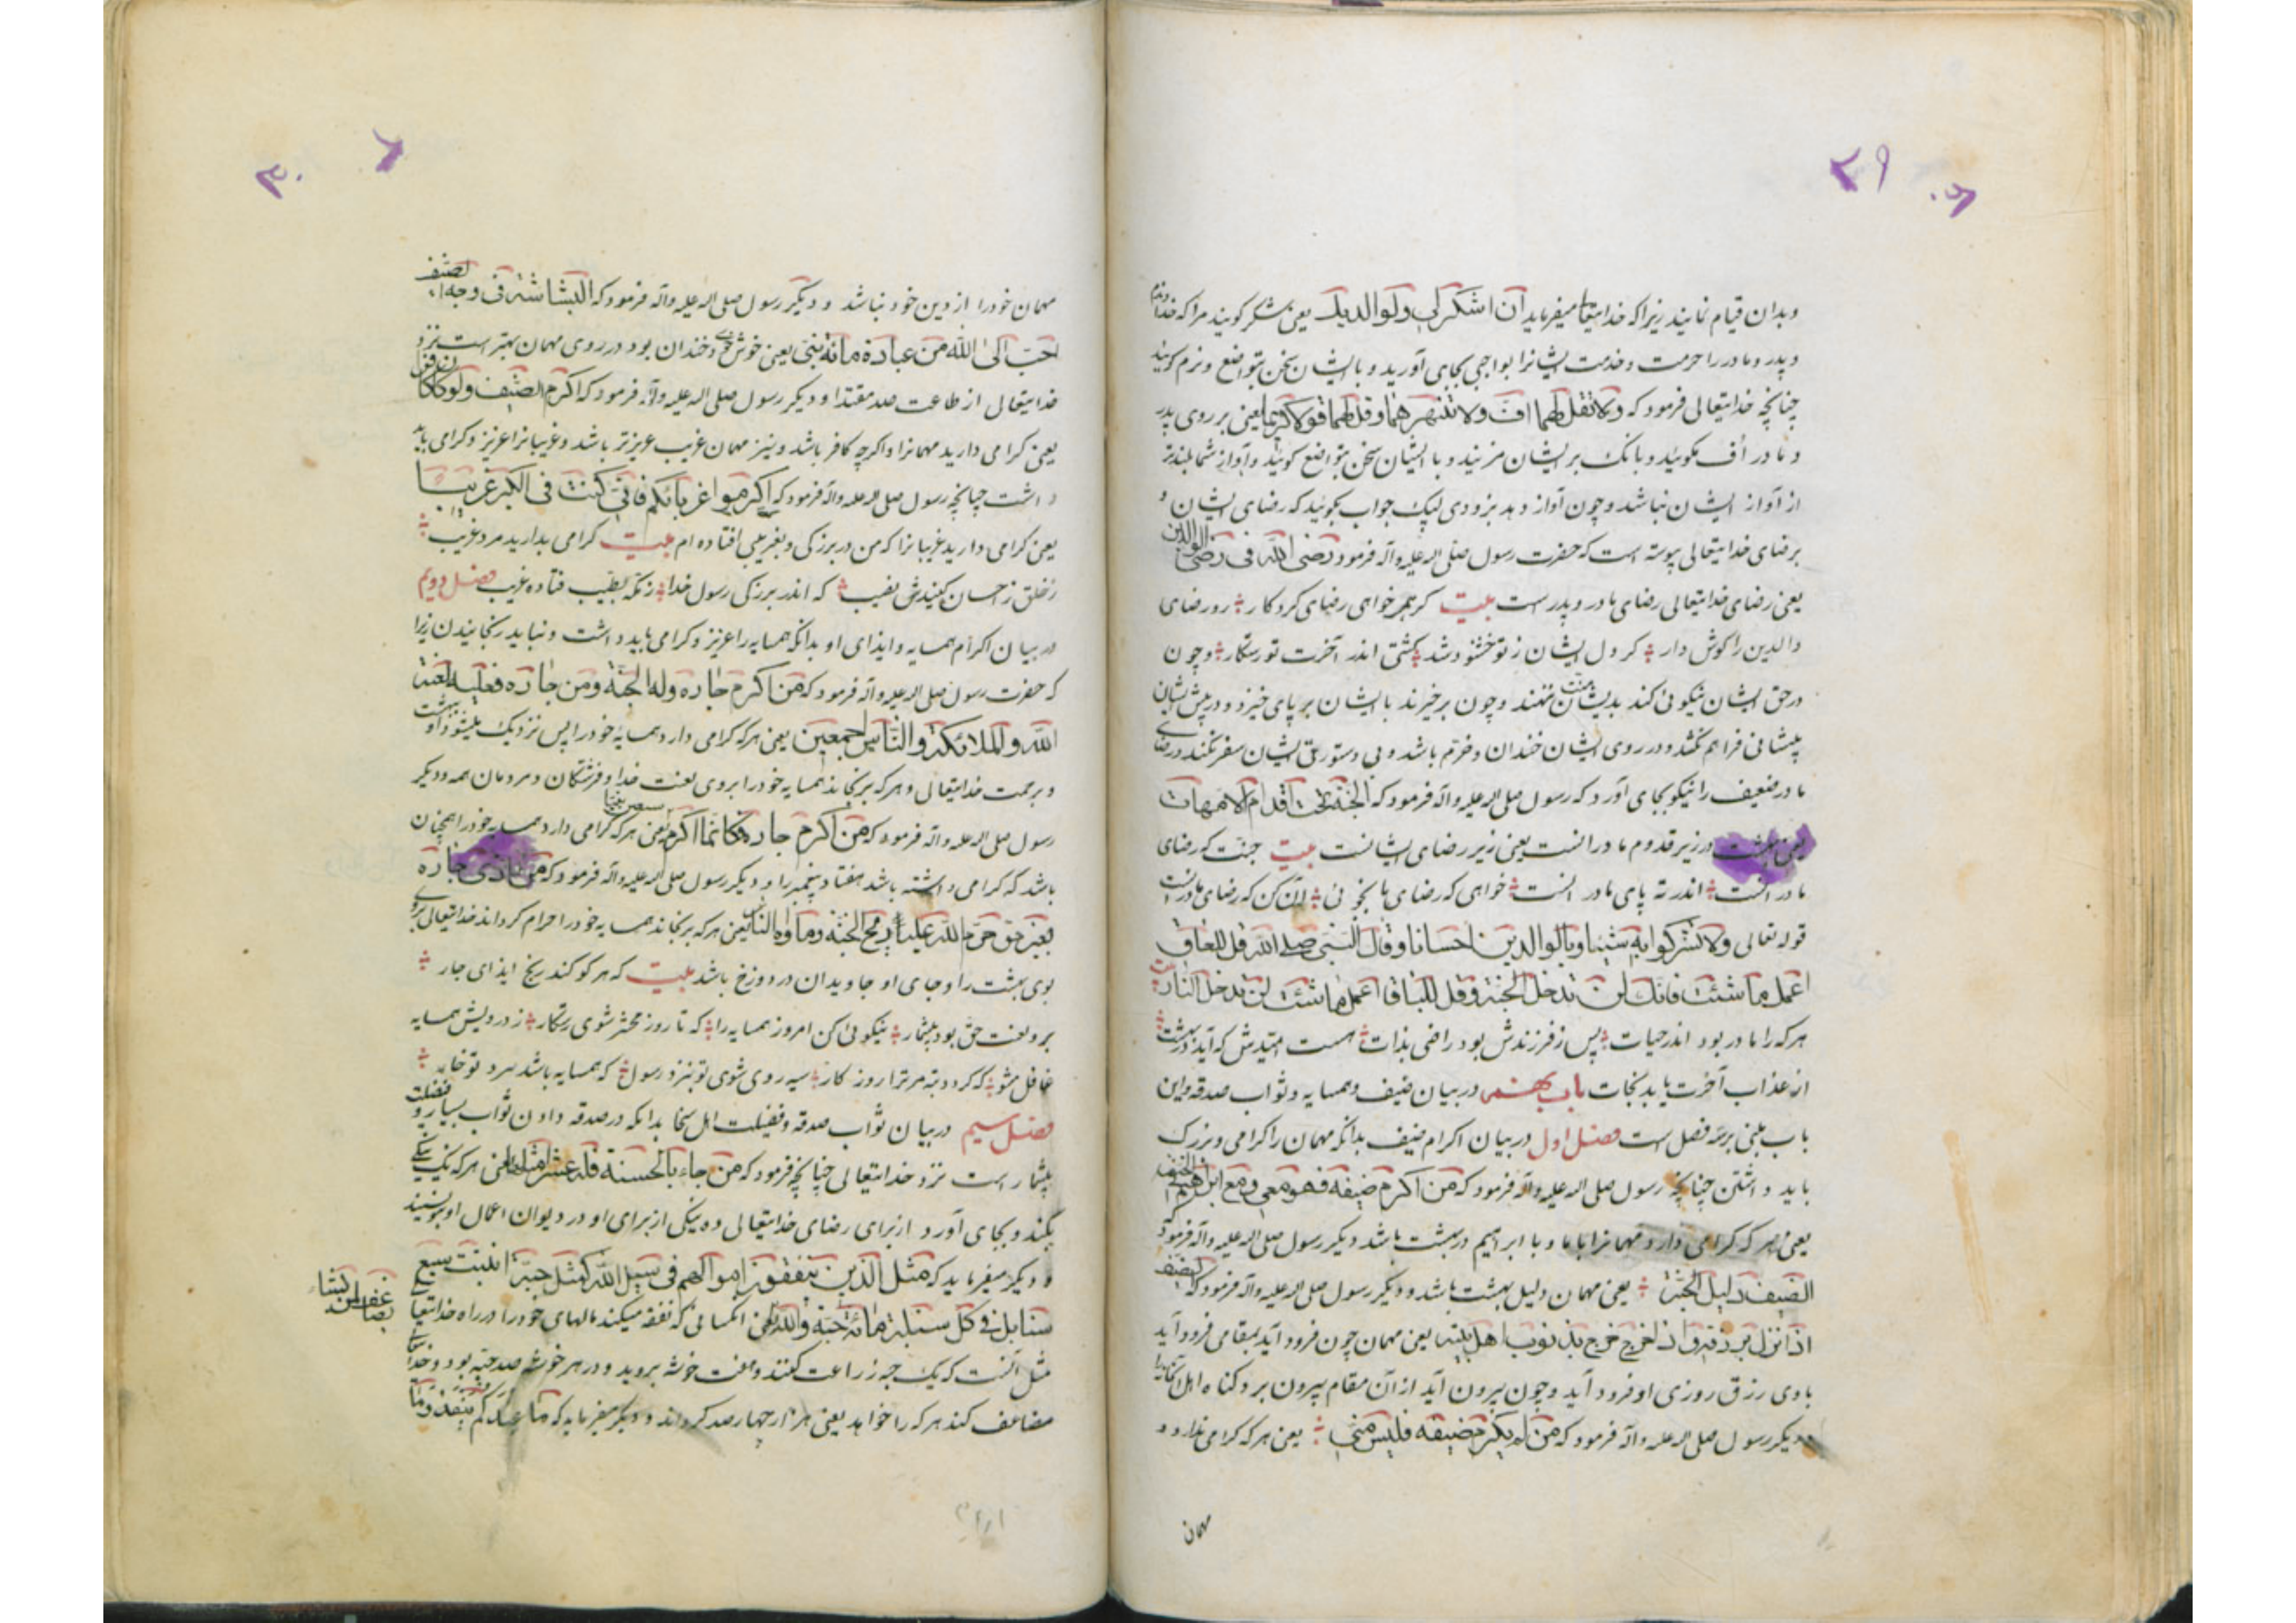 ۲۹
۳۰
وبدان قیام نمایند زیرا که خدایتعا میفرماید ان اشکر لی ولوالدیک یعنی شکر کویید مرا که خدا وندم
و پدر و مادر را حرمت و خدمت ایشانرا بواجبی بجای آورید و با ایشان سخن بتواضع و نرم کویید
چنانچه خدایتعالی فرمود که ولا تقل لهما اف ولا تنهرهما وقل لهما قولا کریما یعنی بر روی پدر
و مادر اُف مکوئید و بانک بر ایشان مزنید و با ایشان سخن بتواضع کوئید و آواز شما بلندتر
از آواز ایشان نباشد و چون آواز دهد بزودی لبیک جواب بکوئید که رضای ایشان و
برضای خدایتعالی پیوسته است که حضرت رسول صلی اله علیه وآله فرمود رضی الله فی رضی الوالدین
یعنی رضای خدایتعالی رضای مادر و پدرست بیت کر همی خواهی رضای کردکار رو رضای
والدین را کوش دار کر دل ایشان ز تو خشنود شد کشتی اندر آخرت تو رستکار و چون
در حق ایشان نیکوئی کند بدیشان منت ننهند و چون برخیزند با ایشان بر پای خیزد و در پیش ایشان
پیشانی فراهم نکشد و در روی ایشان خندان و خرّم باشد و بی دستوری ایشان سفر نکند و رضای
مادر ضعیف را نیکو بجای آورد که رسول صلی اله علیه وآله فرمود که الجنة تحت اقدام الامهات
یعنی بهشت در زیر قدوم مادرانست یعنی زیر رضای ایشانست بیت جنت که رضای
مادر انست اندر ته پای مادر انست خواهی که رضای ما بجوئی آن کن که رضای مادرانست
قوله تعالی ولا تشرکوا به شیئا وبالوالدین احسانا وقال النبی صلی الله قل للعاق
اعمل ما شئت فانک لن تدخل الجنة وقل للبار اعمل ما شئت لن تدخل النار بیت
هر که را مادر بود اندر حیات پس ز فرزندش بود راضی بذات هست امیدش که آید در بهشت
از عذاب آخرت یابد نجات باب در بیان ضیف و همسایه و ثواب صدقه و این
باب مبنی بر سه فصل ست فصل اول در بیان اکرام ضیف بدانکه مهمان را کرامی و بزرک
باید داشتن چنانچه رسول صلی اله علیه وآله فرمود که من اکرم ضیفه فهو معی ومع ابراهیم فی الجنة
یعنی هر که کرامی دارد مهمانرا با ما و با ابراهیم در بهشت باشد دیکر رسول صلی اله علیه وآله فرمود
الضیف دلیل الجنة یعنی مهمان دلیل بهشت باشد و دیکر رسول صلی اله علیه وآله فرمود که الضیف
اذا نزل نزل برزقه واذا خرج خرج بذنوب اهل بیته یعنی مهمان چون فرود آید بمقامی فرود آید
با وی رزق روزی او فرود آید و چون بیرون آید از آن مقام بیرون برد کناه اهل آنجا را
و دیکر رسول صلی اله علیه وآله فرمود که من لم یکرم ضیفه فلیس منی یعنی هر که کرامی ندارد
مهمان
۳۰
مهمان خود را از دین خود نباشد و دیکر رسول صلی اله علیه وآله فرمود که البشاشة فی وجه الضیف
احب الی الله من عبادة مائة سنة یعنی خوش خوی و خندان بود در روی مهمان بهتر است نزد
خدایتعالی از طاعت صد و دیکر رسول صلی اله علیه وآله فرمود که اکرم الضیف ولو کان کافرا
یعنی کرامی دارید مهمانرا و اکرچه کافر باشد و نیز مهمان غریب عزیزتر باشد و غریبانرا عزیز و کرامی باید
داشت چنانچه رسول صلی اله علیه وآله فرمود که اکرموا غربائکم فانی کنت فی الکبر غریبا
یعنی کرامی دارید غریبانرا که من در بزرکی و بغریبی افتاده ام بیت کرامی بدارید مرد غریب
ز خلق ز احسان کنیدش نصیب که اندر بزرکی رسول خدا ز مکه بطیب فتاده غریب فصل دویم
در بیان اکرام همسایه و ایذای او بدانکه همسایه را عزیز و کرامی باید داشت و نباید رنجانیدن زیرا
که حضرت رسول صلی اله علیه وآله فرمود که من اکرم جاره وله الجنة ومن جاره فعلیه لعنة
الله والملائکة والناس اجمعین یعنی هر که کرامی دارد همسایهٔ خود را پس نزدیک میشود او بهشت
و برحمت خدایتعالی و هر که برنجاند همسایه خود را بر وی لعنت خدا و فرشتکان و مردمان همه و دیکر
رسول صلی اله علیه وآله فرمود که من اکرم جاره فکانما اکرم سبعین نبیا یعنی هر که کرامی دارد همسایه خود را همچنان
باشد که کرامی داشته باشد هفتاد پیغمبر را و دیکر رسول صلی اله علیه وآله فرمود که من اذی جاره
بغیر حق حرم الله علیه ریح الجنة وماواه النار یعنی هر که برنجاند همسایه خود را حرام کرداند خدایتعالی بروی
بوی بهشت را و جای او جاویدان در دوزخ باشد بیت که هر کو کند رنج ایذای جار
برو لعنت حق بود بیشمار نیکوئی کن امروز همسایه را که تا روز محشر شوی رستکار ز درویش همسایه
غافل مشو که کردد بتر مر ترا روز کار سیه روی شوی تو بنزد رسول که همسایه باشد
فصل سیم در بیان ثواب صدقه و فضیلت اهل سخا بدانکه در صدقه دادن ثواب بسیار و فضیلت
بیشمار است نزد خدایتعالی چنانچه فرمود که من جاء بالحسنة فله عشر امثالها یعنی هر که یک نیکی
بکند و بجای آورد از برای رضای خدایتعالی ده نیکی از برای او در دیوان اعمال او بنویسند
و دیکر میفرماید که مثل الذین ینفقون اموالهم فی سبیل الله کمثل حبة انبتت سبع
سنابل فی کل سنبلة مائة حبة والله یعنی انکسانی که نفقه میکند مالهای خود را در راه خدایتعا
یضاعف لمن یشاء
مثل آنست که یک حبه زراعت کنند و هفت خوشه بروید و در هر خوشه صد حبه بود و خدایتعا
مضاعف کند هر که را خواهد یعنی هزار چهار صد کرداند و دیکر میفرماید که ما عندکم ینفد وما